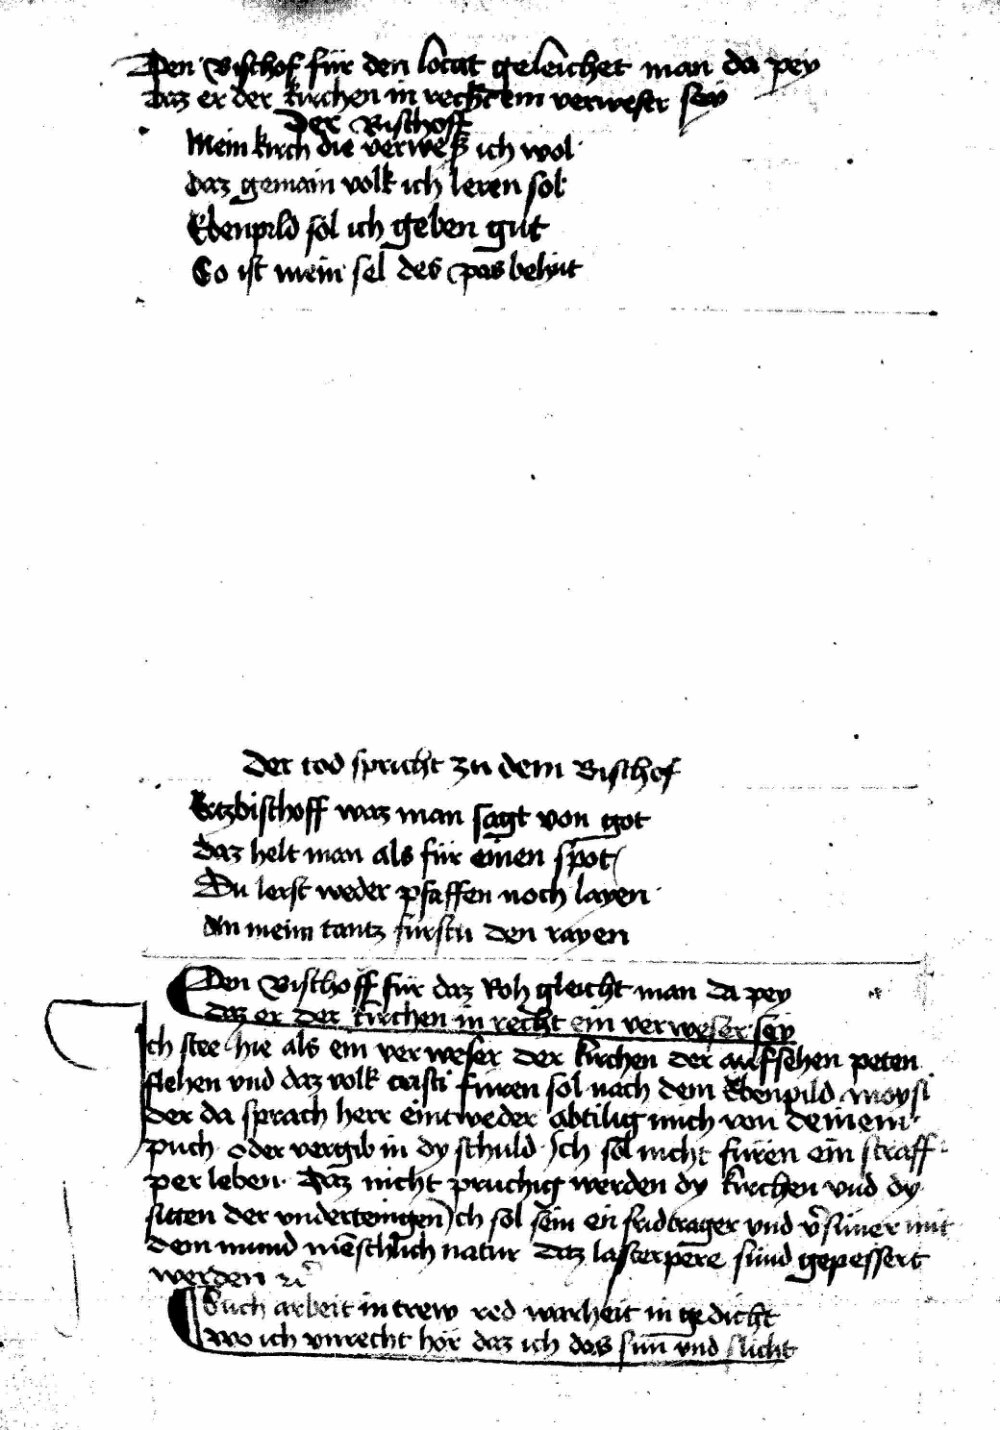 Den Bischof für den locat geleichet man da pey
daz er der kirchen in recht ein verweser sey
Der Bischoff
Mein kirch die verweß ich wol
daz gemain volk ich leren sol
Ebenpild sol ich geben gut
So ist mein sel des pas behüt
Der tod spricht zu dem Bischof
Ertzbischoff waz man sagt von got
daz helt man als für einen spot
Du lerst weder pfaffen noch layen
An meim tantz fürstu den rayen
Den Bischoff für daz Roh gleicht man da pey
daz er der kirchen in recht ein verweser sey
Ich stee hie als ein verweser der kirchen der aufsehen peten
flehen vnd daz volk cristi füren sol nach dem Ebenpild moysi
der da sprach herr eintweder abtilig mich von deinem
puch oder vergib in dy schuld Ich sol nicht füren ein straff
per leben Daz nicht pruchig werden dy kirchen vnd dy
sitten der vnderteingen Ich sol sein ein fridtrager vnd v̄süner mit
dem mund mēschlich natur daz lasterpere sünd gepessert
werden
Such arbeit in trew red warheit in gedicht
wo ich vnrecht hör daz ich das sün̄ vnd slicht